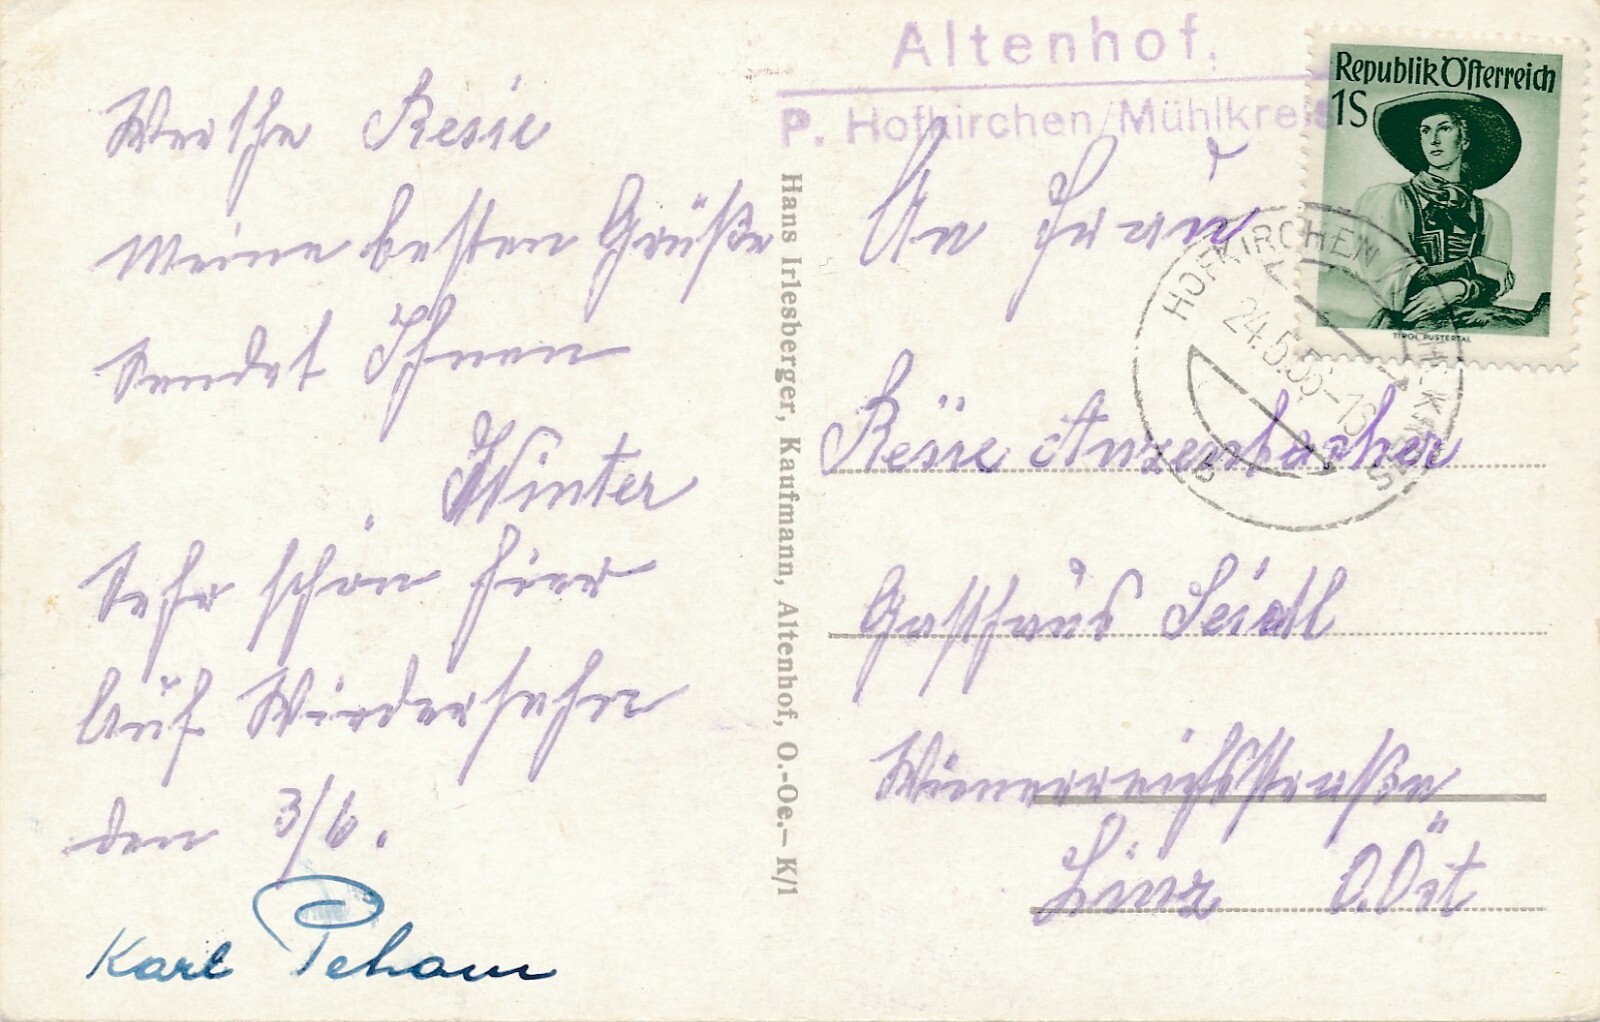 Werthe Resie
Meine besten Grüße
sendet Ihnen
Winter
Sehr schön hier
Auf Wiedersehn
den 3/6.
Karl Peham
Hans Irlesberger, Kaufmann, Altenhof, O.-Oe.- K/1
Altenhof.
P. Hofkirchen/Mühlkreis
Republik Österreich
1S
TIROL, PUSTERTAL
HOFKIRCHEN
24.5.56-18
An Frau
Resie Anzenbacher
Gasthaus Seidl
Wienerreichsstraße
Linz O.Öst